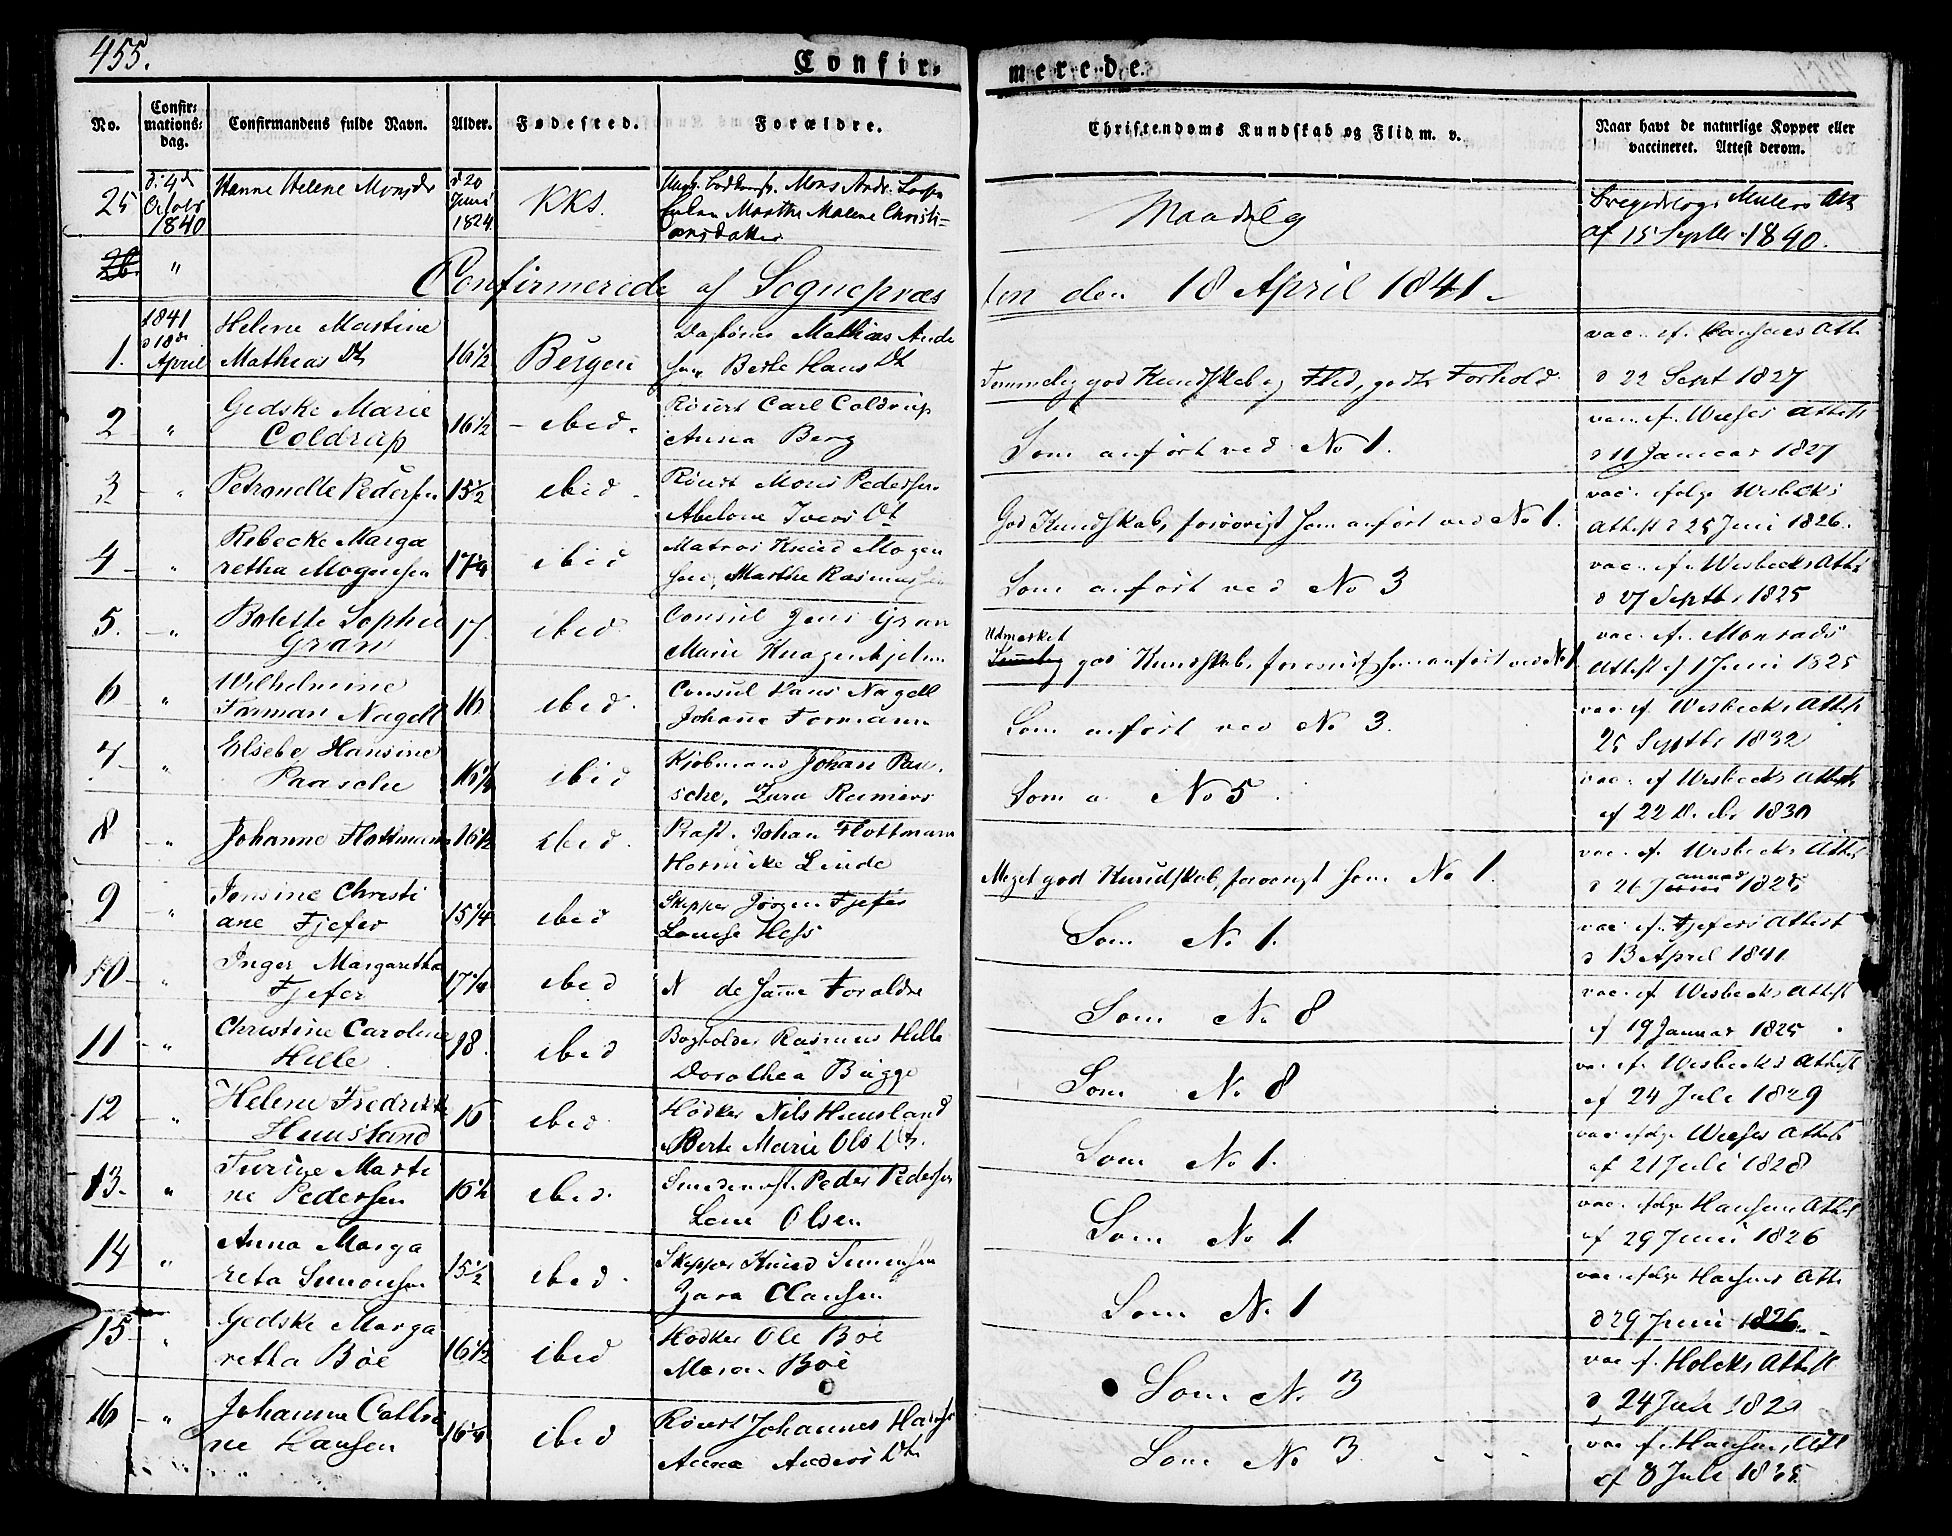 455.
Confir-
merede.
No.
Confir-
mations-
dag.
Confirmandens fulde Navn.
Alder.
Fødested.
Forældre.
Christendoms Kundskab og Flid m. v.
Naar havt de naturlige Kopper eller
vaccineret. Attest derom.
25
d. 4de
Octobr
1840
Hanne Helene Monsdr
d 20
Juni
1824
KKS.
Mons Andr.
Marthe Malene Christi-
ansdatter
Maadelig
af 15 Septbr 1840.
26
"
Confirmerede af Sognepræs
ten den 18 April 1841.
1.
1841
d 18de
April
Helene Martine
Mathias Dt
16 1/2
Bergen
Mathias Ande
sen Berte Hans Dt
Temmelig god Kundskab og Flid, godt Forhold.
vac. ef. Hansens Att.
d 22 Sept 1827
2
"
Gedske Marie
Coldrup
16 1/2
ibid.
Røiert Carl Coldrup
Anna Berg
Som anført ved No 1.
vac. ef. Attest
d 11 Januar 1827
3
"
Petronelle Pedersen
15 1/2
ibid.
Røiert Mons Pedersen
Abelone Ivers Dt
God Kundskab, forøvrigt som anført ved No 1.
vac. ifølge Wesbecks
Attest d 25 Juni 1826.
4
"
Rebecke Marga
retha Mogensen
17 1/4
ibid
Matros Knud Mogen
sen, Marthe Rasmus
Som anført ved No 3
vac. ef. Wesbecks Att.
d 27 Septbr 1825
5.
"
Bolette Sophie
Gran
17.
ibid.
Consul Jens Gran
Marie Knagenhjelm
Udmerket
Temelig god Kundskab, forøvrigt som anført ved No 1
vac. ef. Monrads
Attest af 1 Juni 1825
6
"
Wilhelmine
Forman Nagell
16
ibid.
Consul Hans Nagell
Johanne Formann
Som anført ved No 3.
vac. ef. Wesbecks Attest
25 Septbr 1832
7
"
Elsebe Hansine
Paasche
16 1/4
ibid
Kjøbmand Johan Paa-
sche, Zara Reimers
Som a. No 5.
vac. ef Wesbecks Attest
af 22 1830
8
"
Johanne Flottmann
16 1/2
ibid.
Johan Flottmann
Hernicke Linde
Meget god Kundskab, forøvrigt som No 1.
vac. ef. Wesbecks Attest
d 26 Januar 1825
9
"
Jensine Christi
ane Fjefer
15 1/4
ibid
Skipper Jørgen Fjefer
Lovise Hess
Som No 1.
vac. ef. Fjefers Attest
d 13 April 1841
10
"
Inger Margaretha
Fjefer
17 1/4
ibid
N de samme Foraldre
Som No 8
vac. ef Wesbecks Attest
af 19 Januar 1825
11
"
Christine Caroline
Hille
18.
ibid
Bogholder Rasmus Hille
Dorothea Bugge
Som No 8
vac. ef. Wesbecks Attest
af 24 Juli 1829
12
"
Helene Fredrikke
Huusland
16
ibid
Hødker Nils Huusland
Berte Marie Ols Dt.
Som No 1.
vac. ifølge Attest
af 21 Juli 1828
13.
"
Turine Marti
ne Pedersen
16 1/2
ibid.
Peder Pedersen
Lene Olsen
Som No 1
vac. ifølge Hansens Attest
af 29 Juni 1826
14
"
Anna Marga
reta Simonsen
15 1/2
ibid.
Skipper Knud Simonsen
Zara Clausen
Som No 1
vac. ifølge Hansens Att.
d 29 Juni 1826.
15
"
Gedske Marga
retha Bøe
16 1/2
ibid
Hødker Ole Bøe
Maren Bøe
Som No 3
vac ef. Holcks Attest
d. 24 Juli
16
"
Johanne Cathri
ne Hansen
16 1/4
ibid
Røiert Johannes Hansen
Anna Anders Dtr
Som No 3.
vac ef. Hansens Att
af 8 Juli 1835